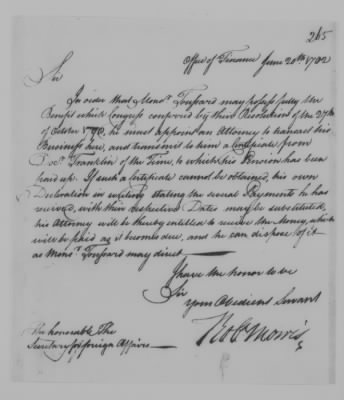 265
Office of Finance June 20th 1782
Sir
In order that Monsr. Touſsard may poſseſs fully the
Benefit which Congreſs conferred by their Resolution of the 27th.
of October 17, he must appoint an Attorney to transact his
Busineſs here, and transmit to him a Certificate from
Docr. Franklin of the Time, to which his Pension has been
paid up. If such a Certificate cannot be obtained, his own
Declaration in writing stating the several Payments he has
received, with their respective Dates may be substituted,
his Attorney will be thereby entitled to receive the Money, which
will be paid as it becomes due, and he can dispose of it
as Monsr. Touſsard may direct
I have the honor to be
Sir
your Obedient Servant
Robt Morris
The honorable The
Secretary for foreign Affairs